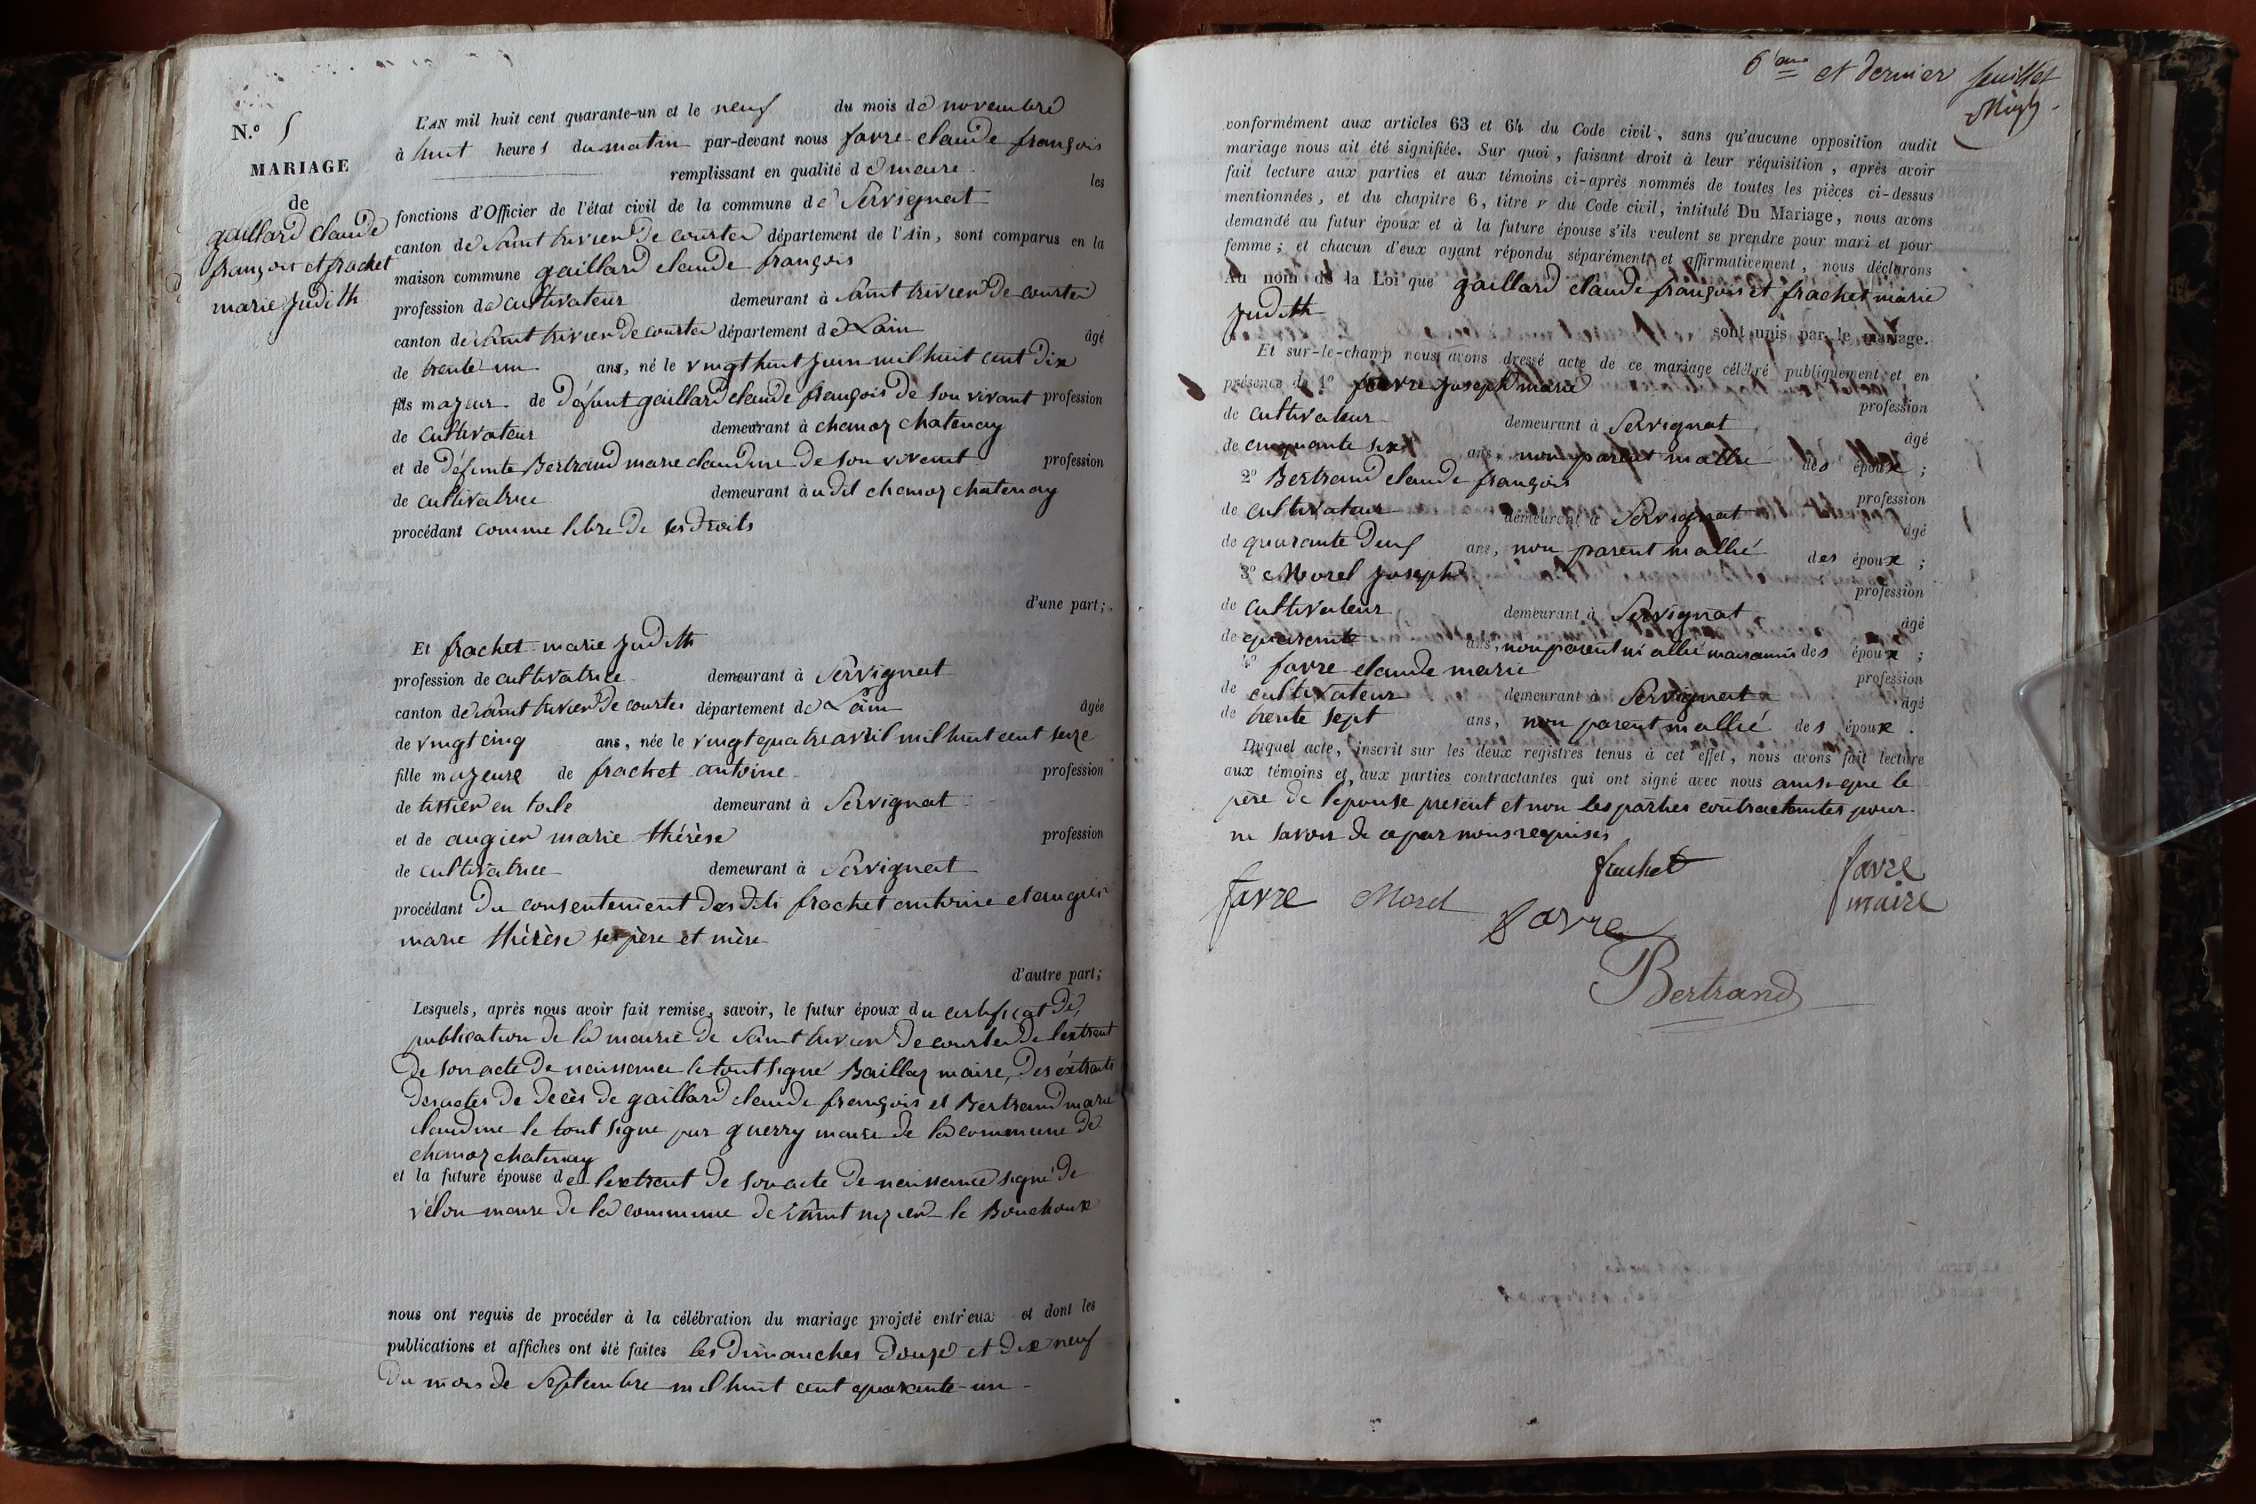 N.º 5
MARIAGE
de
gaillard claude
françois et frachet
marie judith
L'AN mil huit cent quarante-un et le neuf du mois de novembre
à huit heures du matin par-devant nous favre claude françois
remplissant en qualité de maire les
fonctions d'Officier de l'état civil de la commune de Servignat
canton de Saint trivier de courtes département de l'Ain, sont comparus en la
maison commune gaillard claude françois
profession de cultivateur demeurant à Saint trivier de courtes
canton de Saint trivier de courtes département de Lain âgé
de trente un ans, né le vingt huit juin mil huit cent dix
fils majeur de défunt gaillard claude françois de son vivant profession
de cultivateur demeurant à chanoz chatenay
et de défunte Bertrand marie claudine de son vivant profession
de cultivatrice demeurant à udit chanoz chatenay
procédant comme libre de ses droits
d'une part;
Et frachet marie judith
profession de cultivatrice demeurant à Servignat
canton de Saint trivier de courtes département de Lain âgée
de vingt cinq ans, née le vingt quatre avril mil huit cent seize
fille majeure de frachet antoine profession
de tissier en toile demeurant à Servignat
et de augier marie thérèse profession
de cultivatrice demeurant à Servignat
procédant du consentement des dits frachet antoine et augier
marie thérèse ses père et mère
d'autre part;
Lesquels, après nous avoir fait remise, savoir, le futur époux du certificat de
publication de la mairie de Saint trivier de courtes de lextrait
de son acte de naissance le tout signé Baillaz maire, des éxtraits
des actes de decès de gaillard claude françois et Bertrand marie
claudine le tout signe par guerry maire de la commune de
chanoz chatenay
et la future épouse de lextrait de son acte de naissance signé de
vélon maire de la commune de Saint nizier le Bouchoux
nous ont requis de procéder à la célébration du mariage projeté entr'eux et dont les
publications et affiches ont été faites les dimanches douze et dix neuf
du mois de Septembre mil huit cent quarante-un
6ème et dernier feuillet
conformément aux articles 63 et 64 du Code civil, sans qu'aucune opposition audit
mariage nous ait été signifiée. Sur quoi, faisant droit à leur réquisition, après avoir
fait lecture aux parties et aux témoins ci-après nommés de toutes les pièces ci-dessus
mentionnées, et du chapitre 6, titre v du Code civil, intitulé Du Mariage, nous avons
demandé au futur époux et à la future épouse s'ils veulent se prendre pour mari et pour
femme; et chacun d'eux ayant répondu séparément et affirmativement, nous déclarons
Au nom de la Loi que gaillard claude françois et frachet marie
judith
sont unis par le mariage.
Et sur-le-champ nous avons dressé acte de ce mariage célébré publiquement et en
présence de 1º favre joseph marie profession
de cultivateur demeurant à Servignat âgé
de cinquante six ans, non parent ni allié des époux;
2º Bertrand claude françois profession
de cultivateur demeurant à Servignat âgé
de quarante deux ans, non parent ni allié des époux;
3º Morel joseph profession
de cultivateur demeurant à Servignat âgé
de quarante ans, non parent ni allié mais amis des époux;
4º favre claude marie profession
de cultivateur demeurant à Servignat âgé
de trente sept ans, non parent ni allié des époux.
Duquel acte, inscrit sur les deux registres tenus à cet effet, nous avons fait lecture
aux témoins et aux parties contractantes qui ont signé avec nous ainsi que le
père de lepouse présent et non les parties contractantes pour
ne savoir de ce par nous requises
frachet
favre
maire
favre
Morel
favre
Bertrand